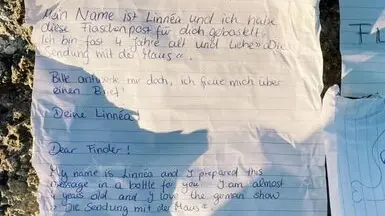 Mein Name ist Linnéa und ich habe
diese Flaschenpost für dich gebastelt.
Ich bin fast 4 Jahre alt und liebe »Die
Sendung mit der Maus«.
Bitte antworte mir doch, ich freue mich über
einen Brief!
Deine Linnéa!
Dear Finder!
My name is Linnéa and I prepared this
message in a bottle for you. I am almost
4 years old and I love the german show
"Die Sendung mit der Maus"